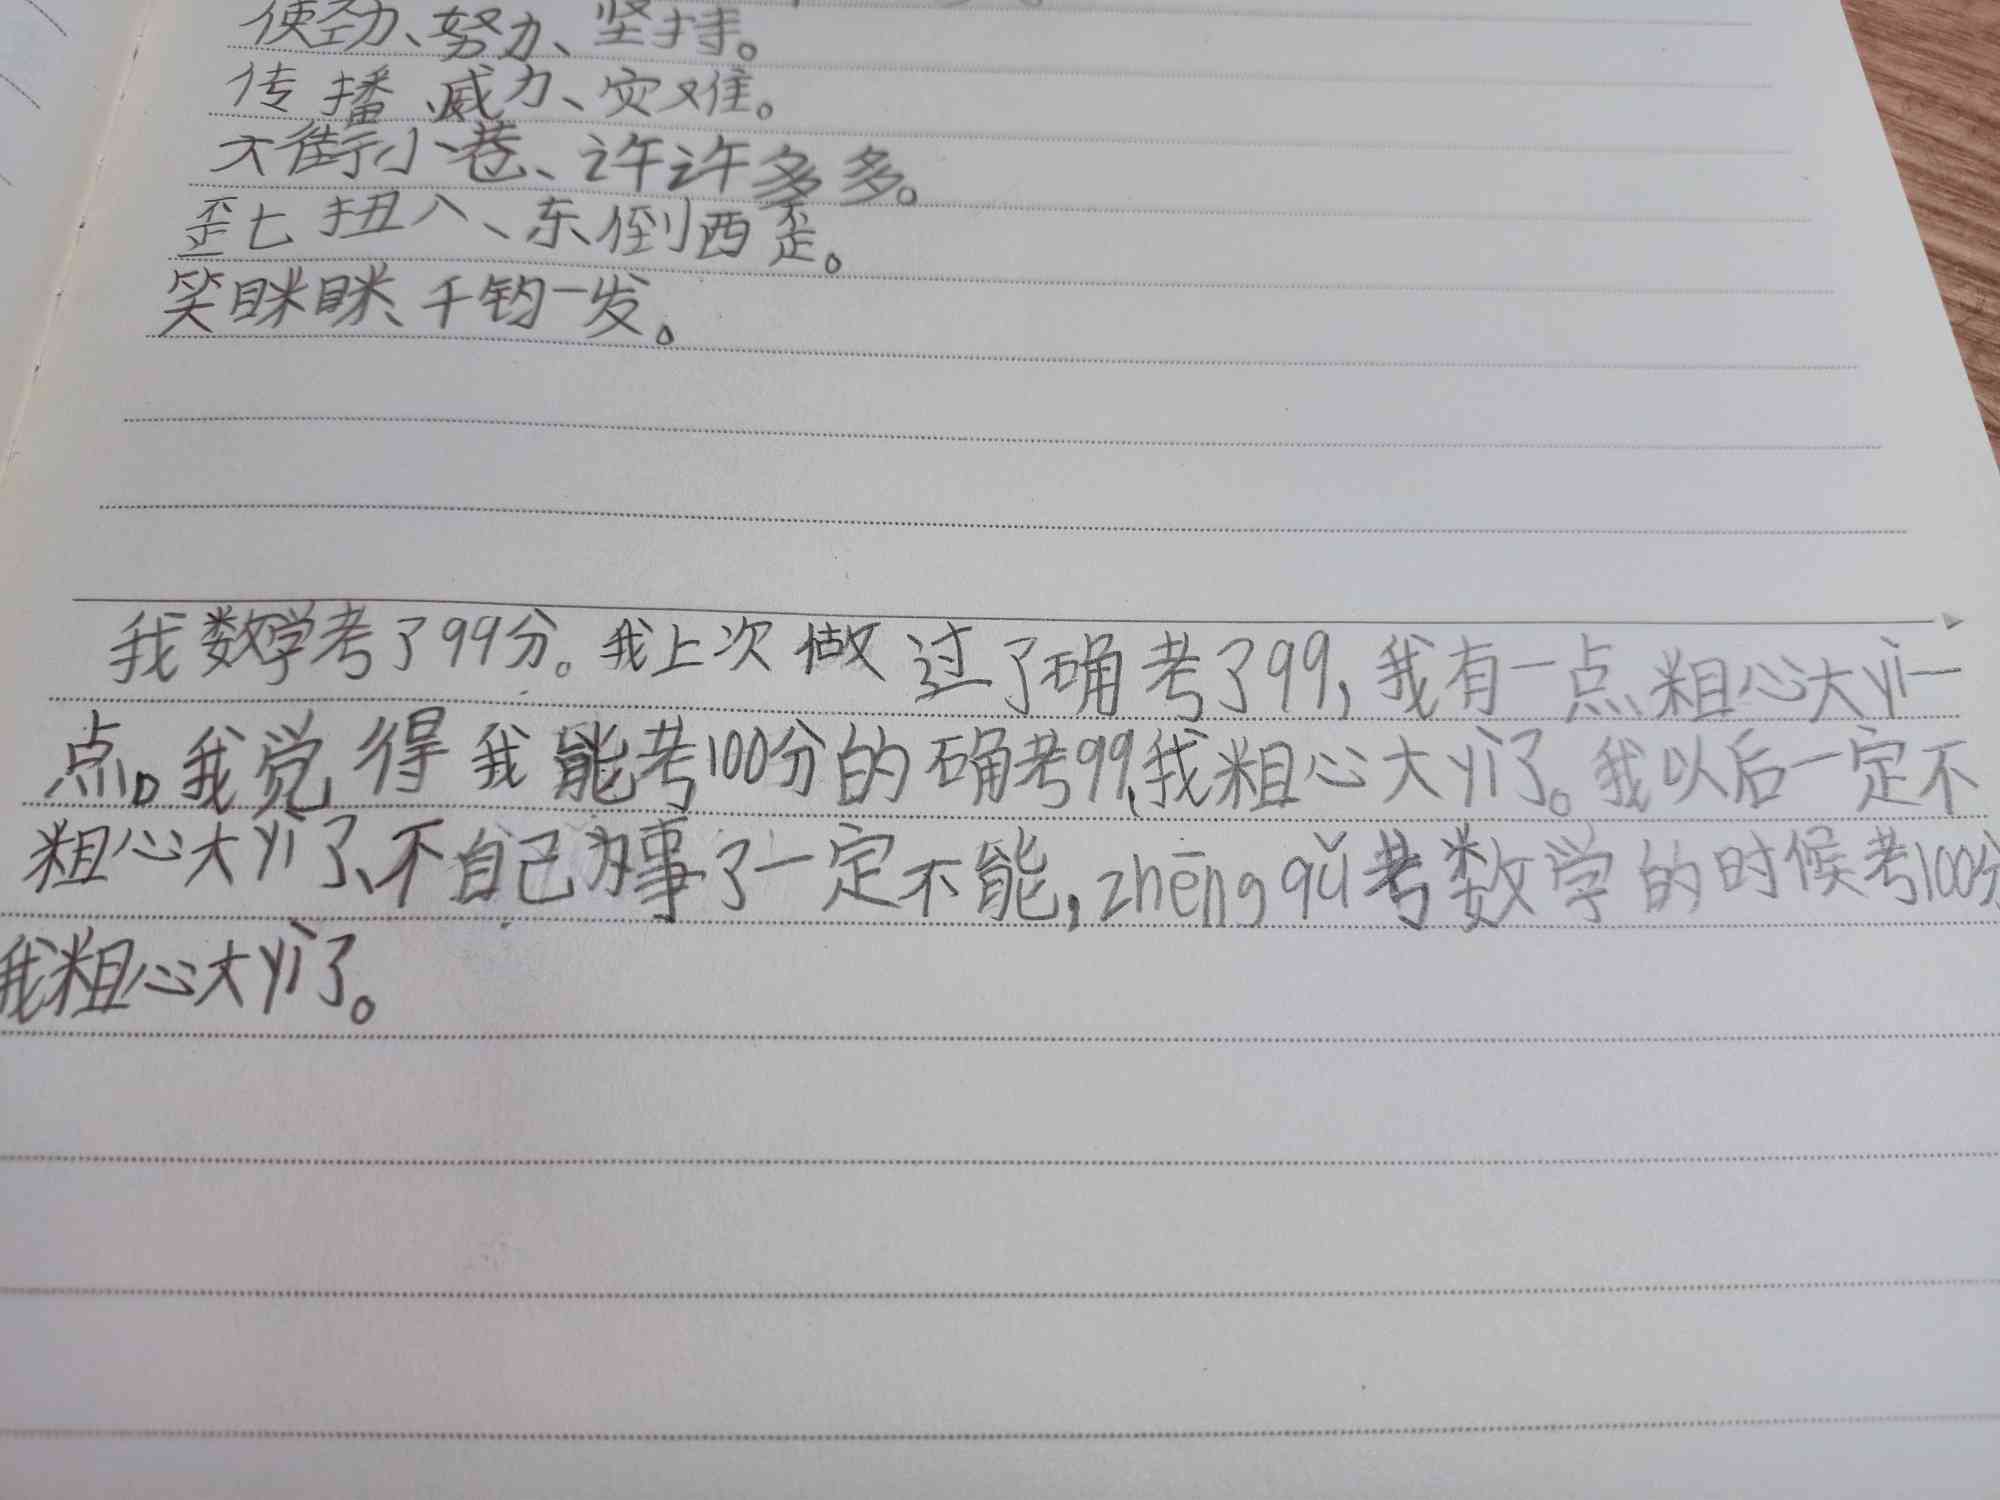 使劲、努力、坚持。
传播、威力、灾难。
大街小巷、许许多多。
歪七扭八、东倒西歪。
笑眯眯、千钧一发。
我数学考了99分。我上次做过了确考了99,我有一点、粗心大yì一
点。我觉得我能考100分的确考99,我粗心大yì了。我以后一定不
粗心大yì了、不自己为事了一定不能,zhēng qǔ考数学的时候考100分
我粗心大yì了。